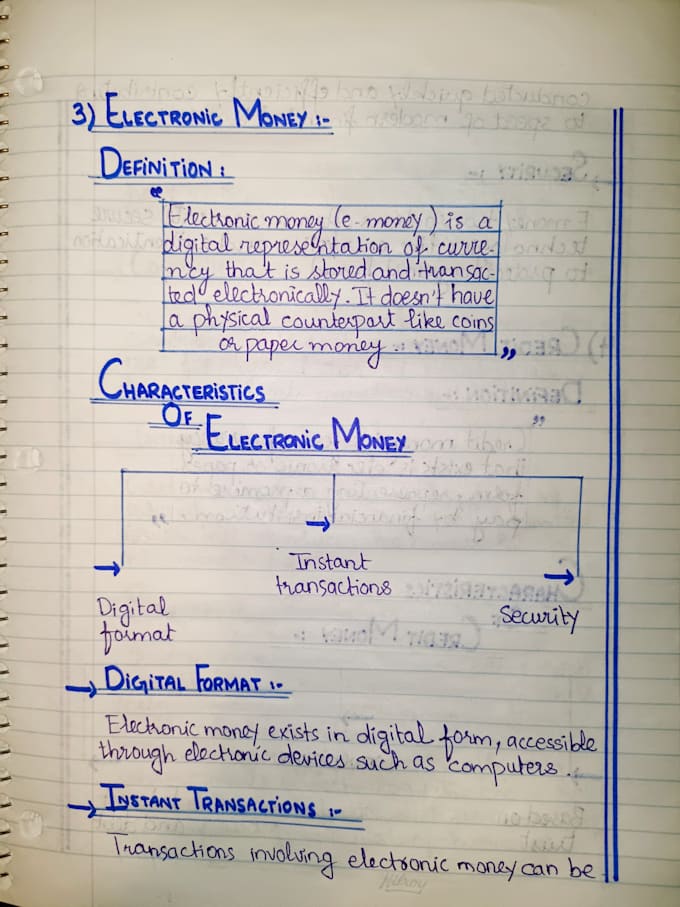 3) ELECTRONIC MONEY :-
DEFINITION :
"Electronic money (e-money) is a
digital representation of curre-
ncy that is stored and transac-
ted electronically. It doesn't have
a physical counterpart like coins
or paper money. "
CHARACTERISTICS
OF
ELECTRONIC MONEY
Instant
transactions
Digital
format
Security
→ DIGITAL FORMAT :-
Electronic money exists in digital form, accessible
through electronic devices such as computers.
→ INSTANT TRANSACTIONS :-
Transactions involving electronic money can be